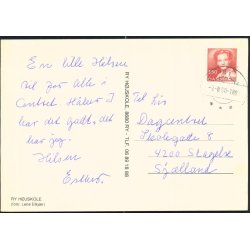 En lille Hilsen
til jer alle i
Centret Håber I
har det godt, det
har jeg.
Hilsen
RY HØJSKOLE
Foto: Lene Eskjær
RY HØJSKOLE 8680 RY - TLF. 06 89 18 88
Til Lis
Dagcentret
Skolegade 8
4200 Slagelse
Sjælland